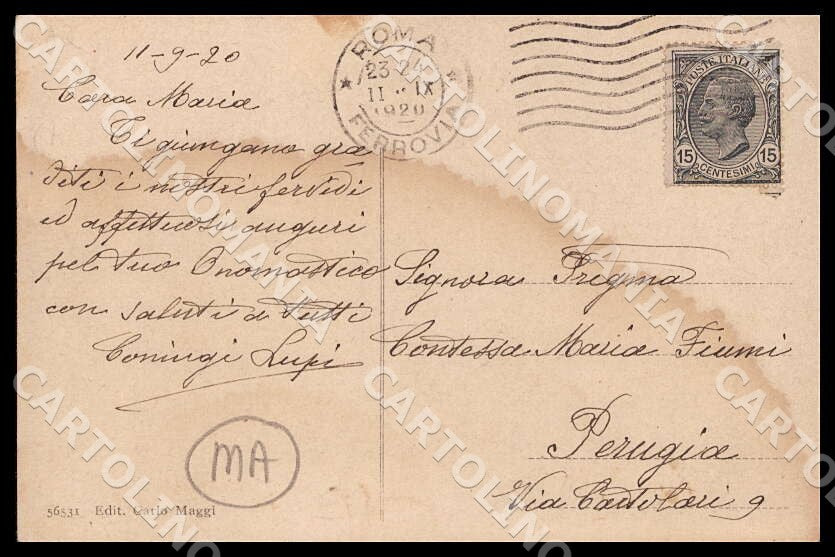 11-9-20
Cara Maria
Ti giungano gra
diti i nostri fervidi
ed affettuosi auguri
pel tuo Onomastico
con saluti a tutti
Coniugi Lupi
MA
56531 Edit. Carlo Maggi
ROMA
23-24
11 IX
1920
FERROVIA
POSTE ITALIANE
15 CENTESIMI 15
Signora Pregma
Contessa Maria Fiumi
Perugia
Via Bartolari 9
CARTOLINOMANIA